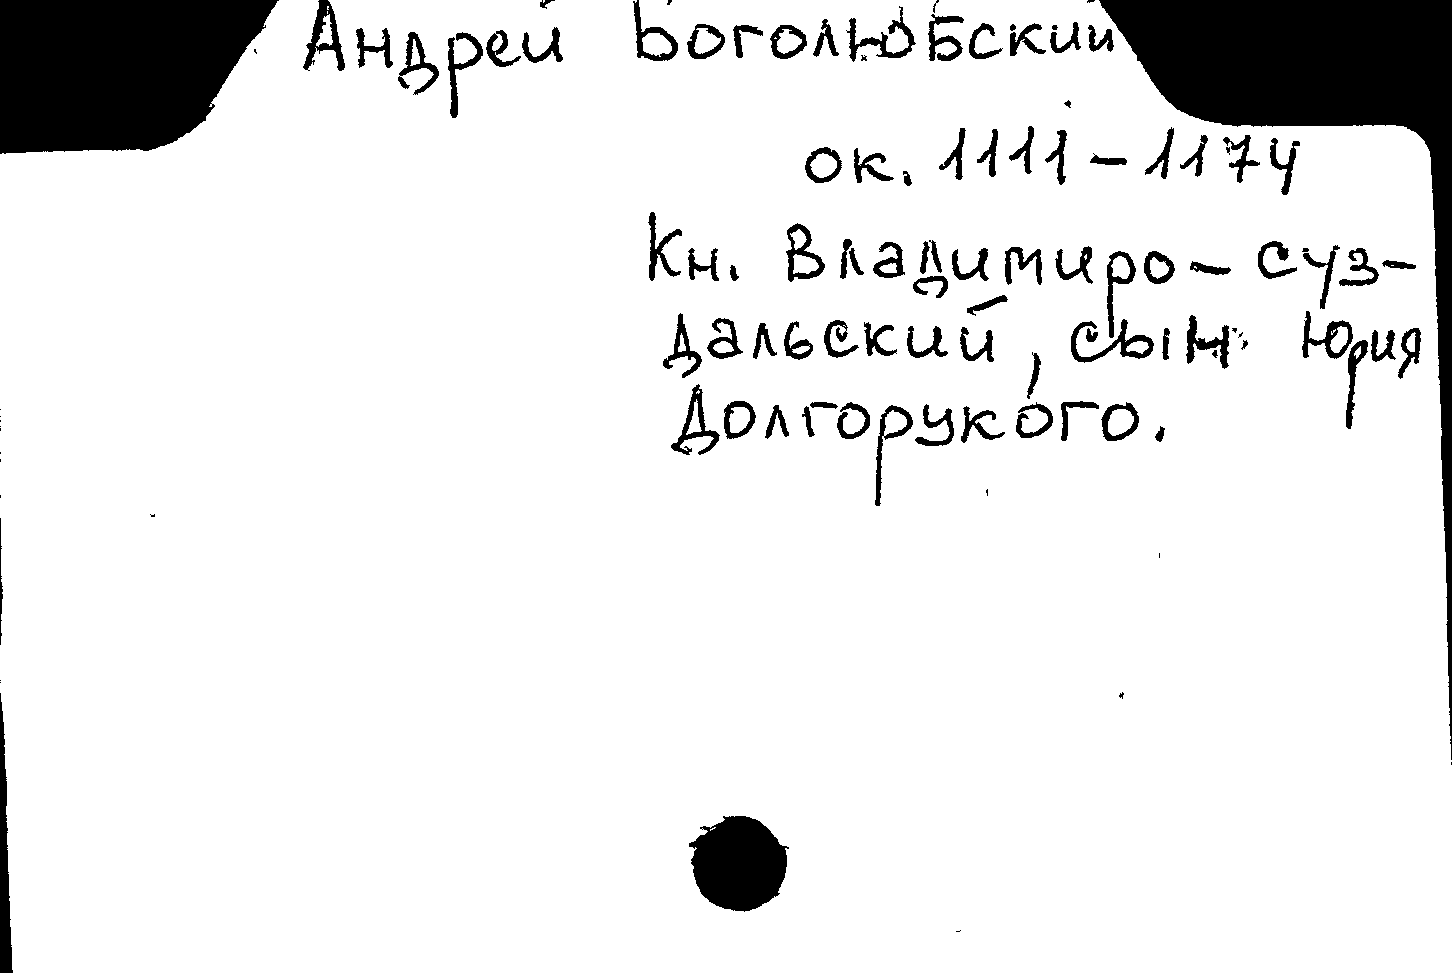 Андрей Боголюбский
ок. 1111 – 1174
Кн. Владимиро – суз-
дальский, сын Юрия
Долгорукого.